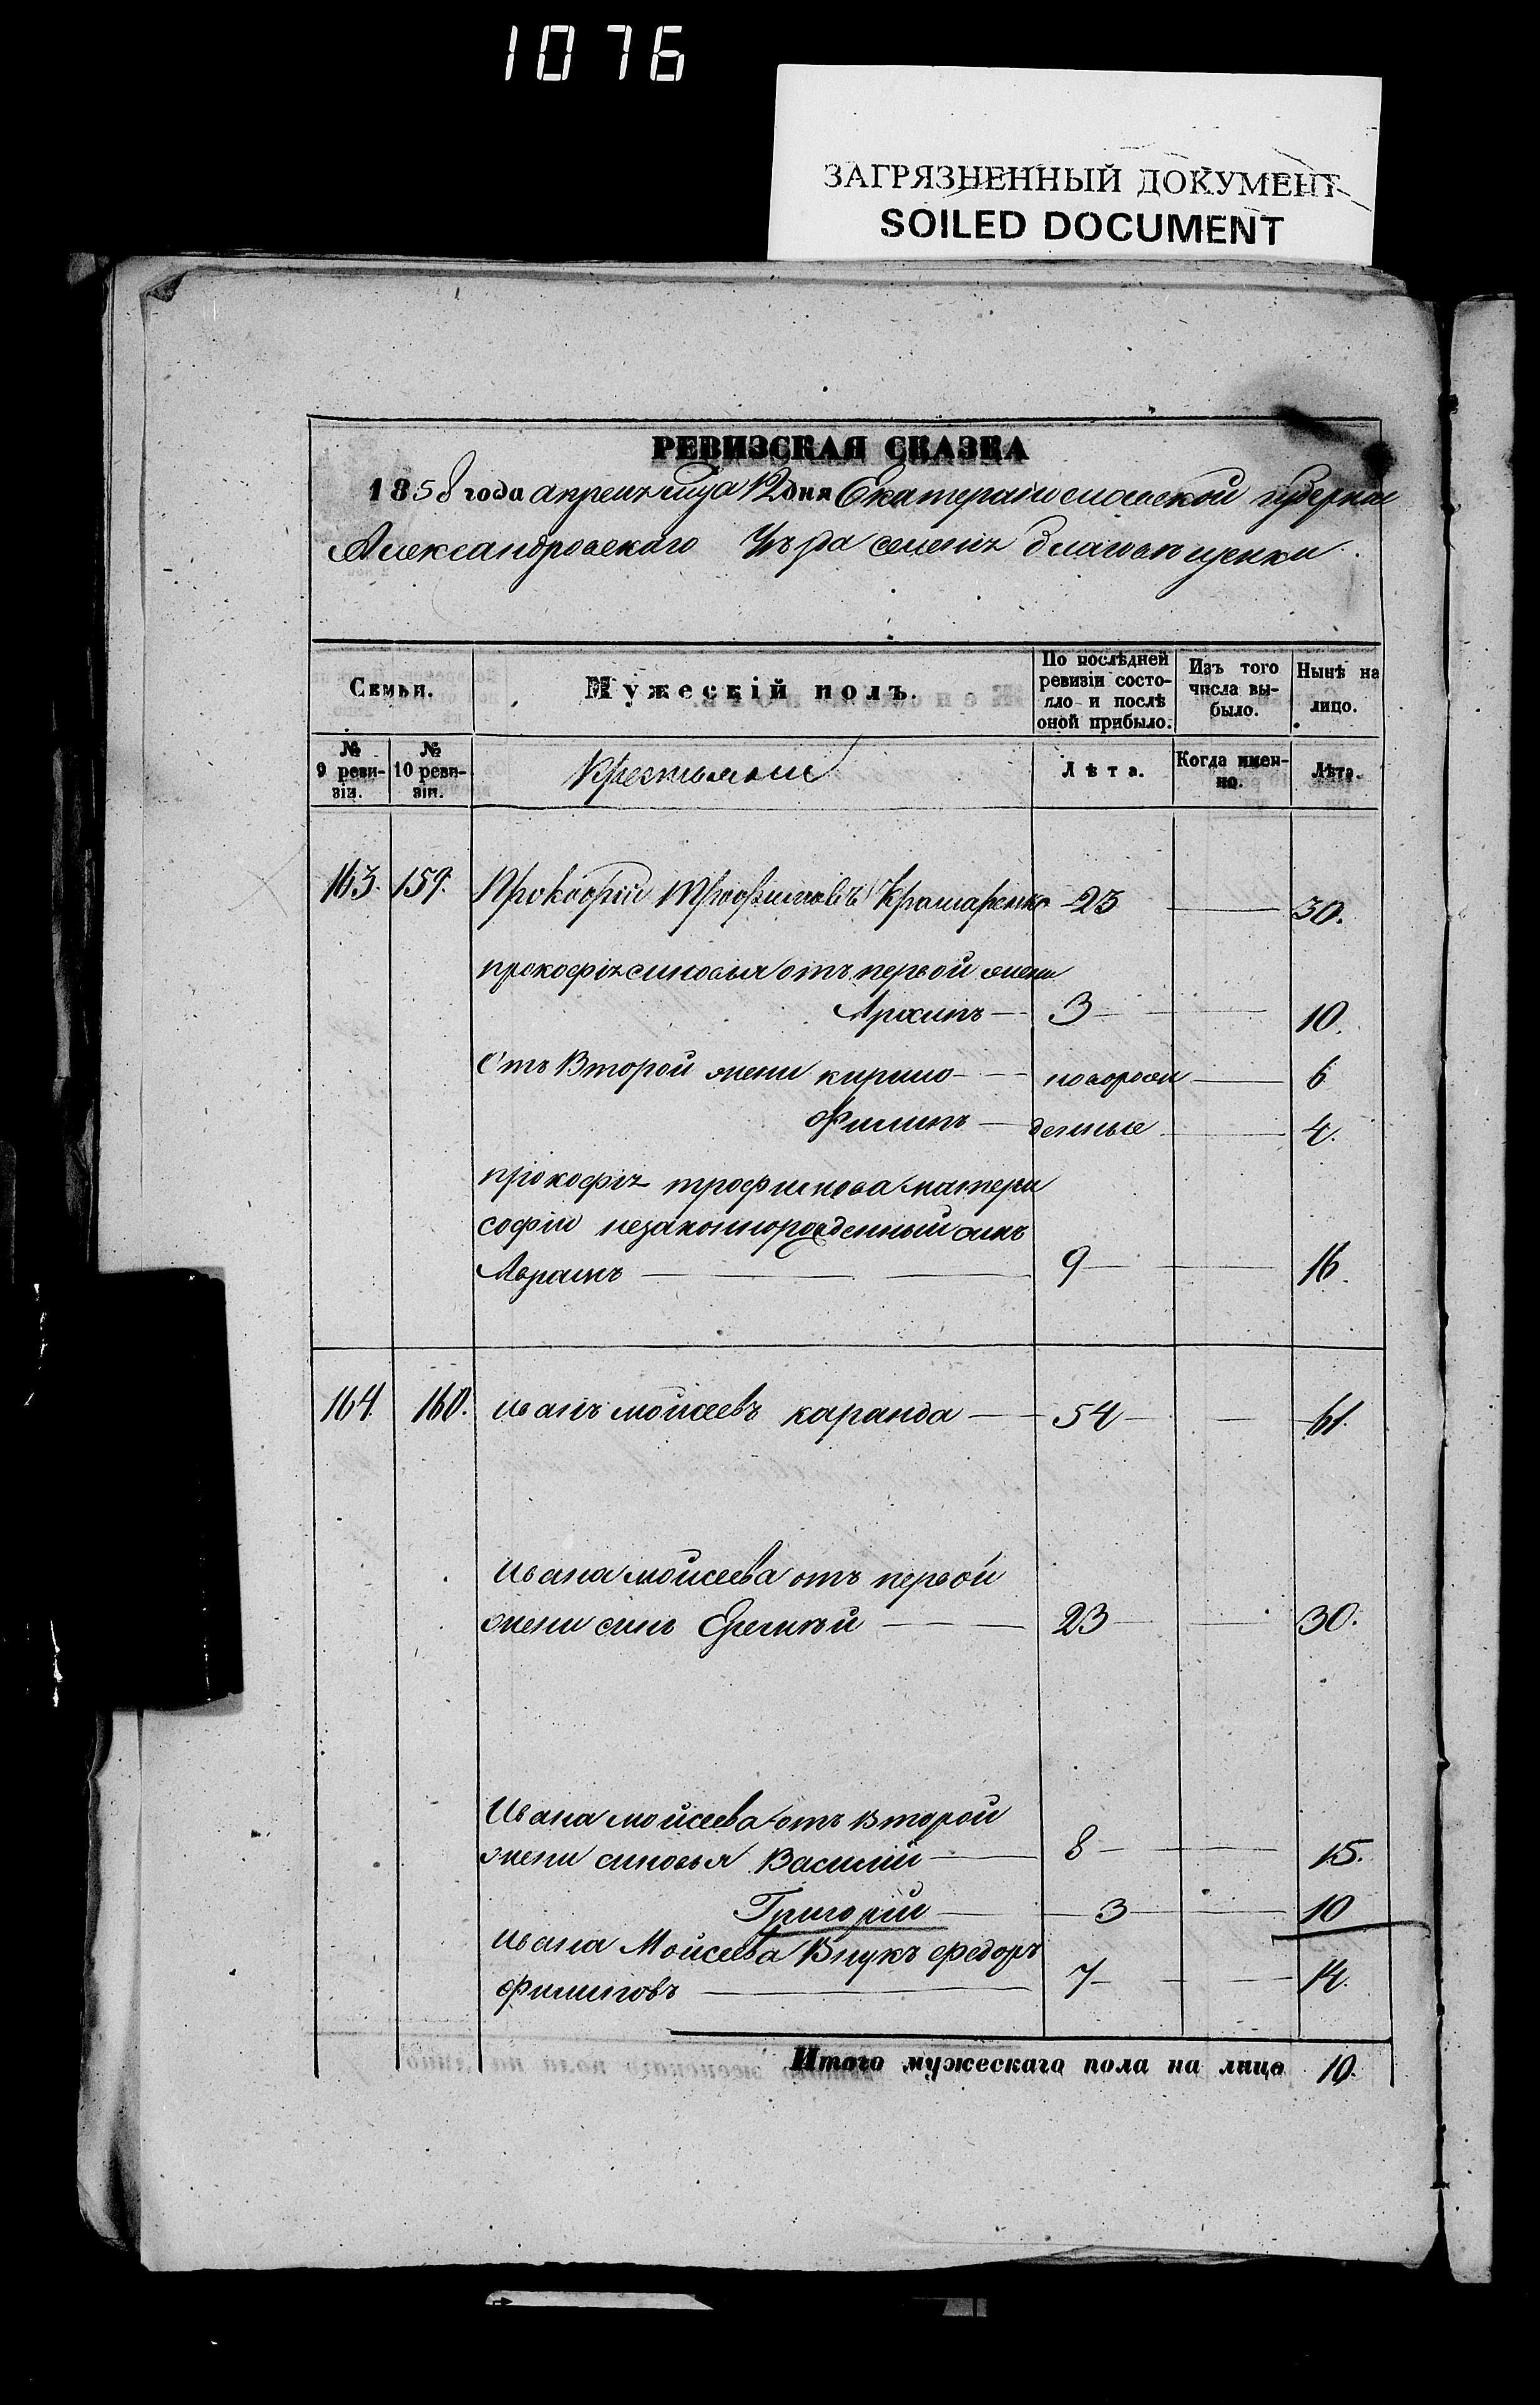 1076
ЗАГРЯЗНЕННЫЙ ДОКУМЕНТ
SOILED DOCUMENT
РЕВИЗСКАЯ СКАЗКА
1858 года апреля м-ца 12 дня Екатеринославской губернии
Александровского уезда благовещенки
Семьи.
Мужескій полъ.
По послѣдней ревизіи состояло и послѣ оной прибыло.
Изъ того числа выбыло.
Нынѣ на лицо.
№ 9 ревизіи.
№ 10 ревизіи.
Крестьяне
Лѣта.
Когда именно.
Лѣта.
163. 159. Прокофій Трофимовъ Крамаренко 23 30.
прокофія синовья отъ первой жени
Архипъ 3 10.
Отъ Второй жени кирило новорож 6
Филипъ денные 4.
прокофія трофимова матери
софіи незаконнорожденный синъ
Аврамъ 9 16.
164. 160. иванъ мойсеевъ каранда 54 61.
ивана мойсеева отъ первой
жени синъ Еремѣй 23 30.
Ивана мойсеева отъ Второй
жени синовья Василій 8 15.
Григорій 3 10
ивана Мойсеева Внукъ Федоръ
филиповъ 7 14.
Итого мужескаго пола на лицо 10.